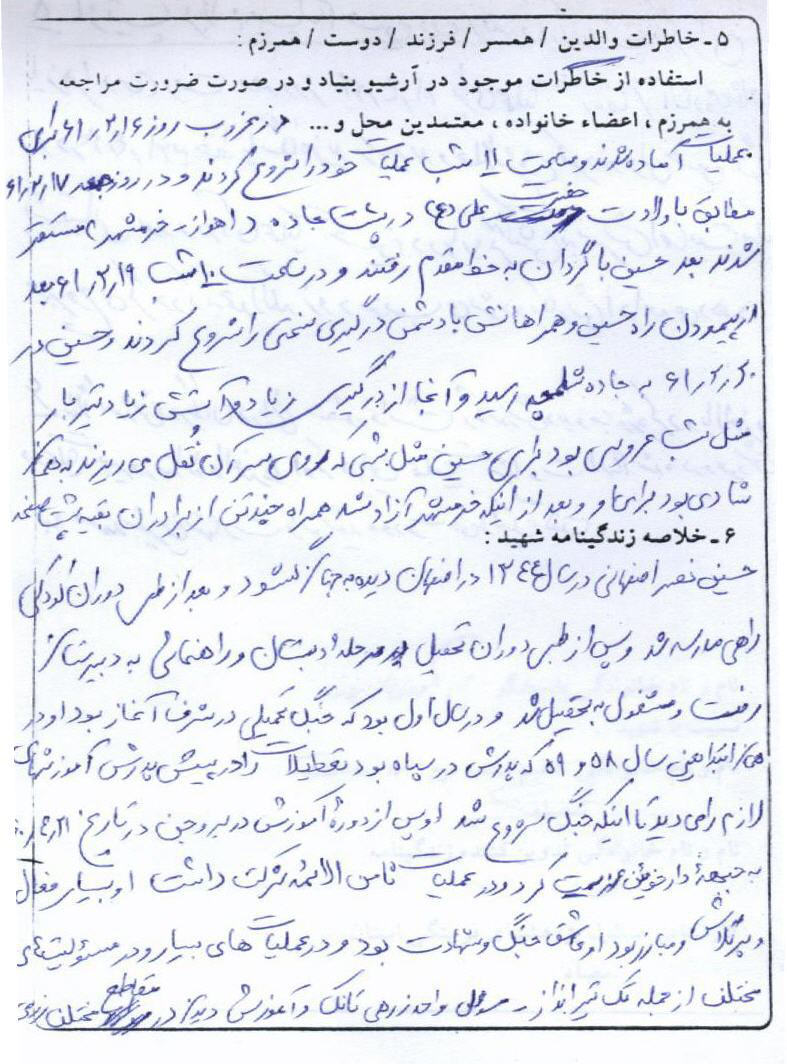 ۵ ـ خاطرات والدین / همسر / فرزند / دوست / همرزم :
استفاده از خاطرات موجود در آرشیو بنیاد و در صورت ضرورت مراجعه
به همرزم ، اعضاء خانواده ، معتمدین محل و ... در غروب روز ۱۶ر۲ر۶۱ برای
عملیات آماده شدند و ساعت ۱۱ شب عملیات خود را شروع کردند و در روز جمعه ۱۷ر۲ر۶۱
مطابق با ولادت حضرت علی (ع) در پشت جاده (اهواز ـ خرمشهر) مستقر
شدند بعد حسین با گردان به خط مقدم رفتند و در ساعت ۱۰ شب ۱۹ر۲ر۶۱ بعد
از پیمودن راه حسین و همراهانش با دشمن درگیری سختی را شروع کردند و حسین در
۲۰ر۲ر۶۱ به جاده شلمچه رسید و آنجا از درگیری زیاد و آتش زیاد تیربار
مثل شب عروسی بود برای حسین مثل شبی که روی سر آن نقل می ریزند به
شادی بود برای او و بعد از اینکه خرمشهر آزاد شد همراه چند تن از برادران بقیه پشت صفحه
۶ ـ خلاصه زندگینامه شهید :
حسین نصر اصفهانی در سال ۱۳۴۴ در اصفهان دیده به جهان گشود و بعد از طی دوران کودکی
راهی مدرسه شد و پس از طی دوران تحصیل مرحله دبستان و راهنمائی به دبیرستان
رفت و مشغول به تحصیل شد و در سال اول بود که جنگ تحمیلی در شرف آغاز بود او در
همان ابتدا یعنی سال ۵۸ و ۵۹ که پدرش در سپاه بود تعطیلات را در پیش پدرش آموزشهای
لازم را می دید تا اینکه جنگ شروع شد او پس از دوره آموزش در بروجن در تاریخ
به جبهه دارخوین عزیمت کرد و در عملیات ثامن الائمه شرکت داشت او بسیار فعال
و پرتلاش و مبارز بود او عاشق جنگ و شهادت بود و در عملیات های بسیار و در مسئولیتهای
مختلف از جمله تک تیرانداز ـ مسئول واحد زرهی تانک و آموزش دیدن در مقاطع مختلف